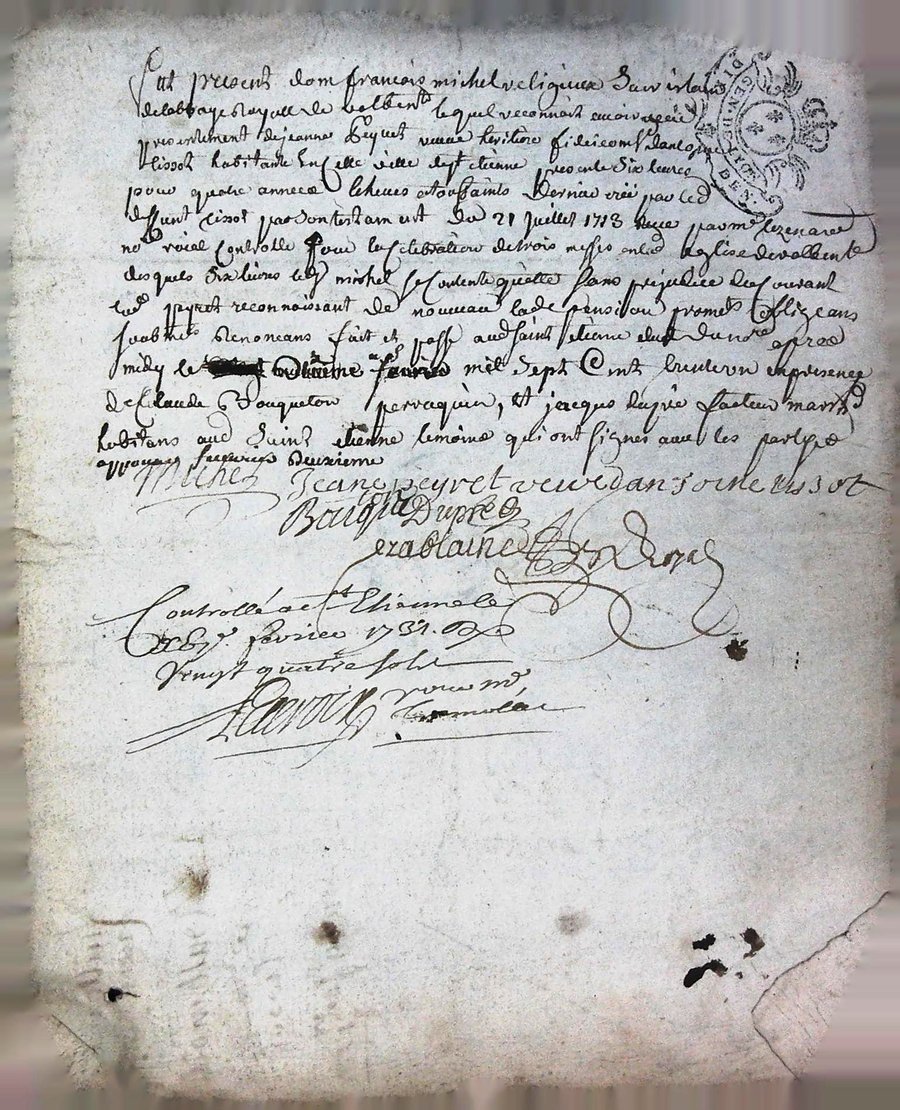 fut present dom francois michel religieux Sacristain
de labbaye Royalle de valbente lequel reconnoit avoir receu
presentement de jeanne Peyret veuve heritiere fideicomre dantoine
lissot habitante en cette ville de st etienne presente Six livres
pour quatre annees echeues a toussaints derniere par led
deffunt lissot par son testament du 21 juillet 1713 receu par me
nore roial Controlle pour la Celebration de trois messes en lad eglise de valbente
desquels Six livres led michel se Contente quitte sans prejudice du Courant
lad peyret reconnoissant de nouveau lade pension promets obligeans
soubmis Renoncans fait et passé aud saint etienne etude du nore apres
midy le fevrier mil Sept Cents trente un en presence
de Claude Bouqueton perraquier, et jacques dupré facteur march
habitans aud Saint etienne temoins qui ont signes avec les parties
approuvant deuxieme
Michel Jeane peyret veuve dantoine lissot
Dupré
Royal
Controllé a St Etienne le
fevrier 1731. R
Vingt quatre sols